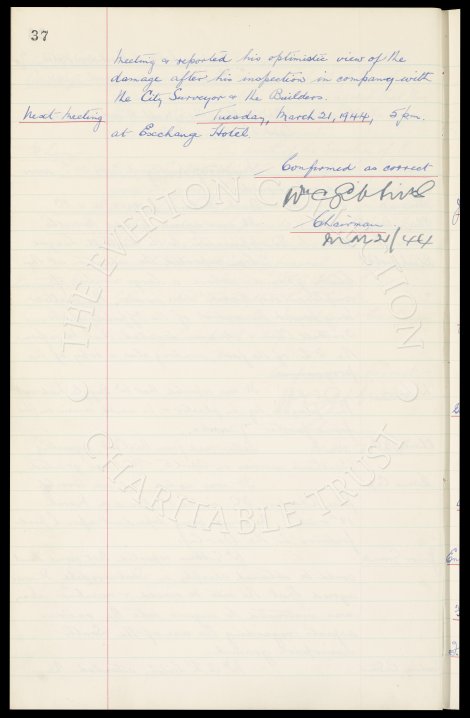 37
meeting & reported his optimistic view of the
damage after his inspection in company with
the City Surveyor & the Builders.
Next Meeting Tuesday, March 21, 1944, 5 p.m.
at Exchange Hotel.
Confirmed as correct
Wm C Gibbins
Chairman.
Mar 21/44
THE EVERTON COLLECTION
CHARITABLE TRUST